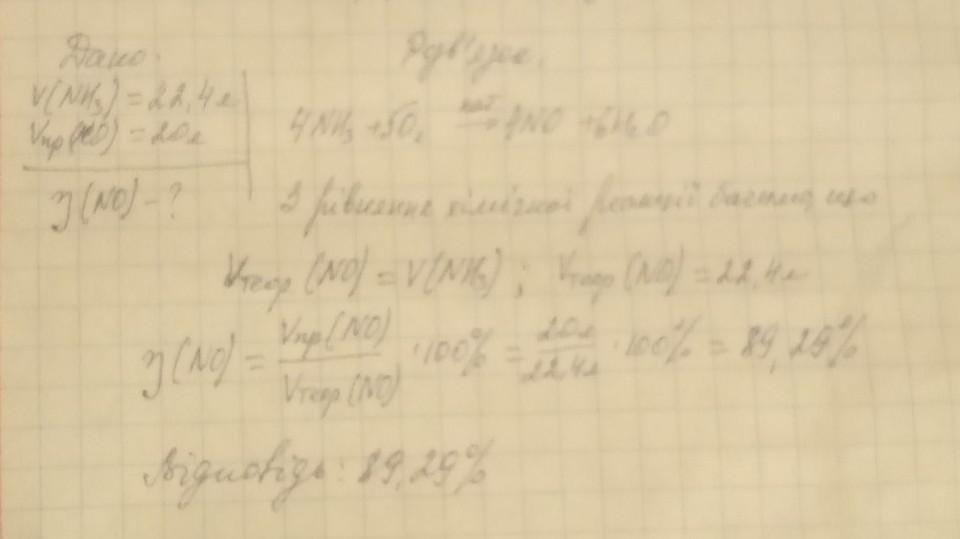 Дано:
V(NH₃) = 22,4 л
Vпр(NO) = 20 л
η(NO) - ?
Розв'язок.
4NH₃ + 5O₂ кат→ 4NO + 6H₂O
З рівняння хімічної реакції бачимо що
Vтеор(NO) = V(NH₃) ; Vтеор(NO) = 22,4 л
η(NO) = Vпр(NO) / Vтеор(NO) · 100% = 20 л / 22,4 л · 100% = 89,29%
Відповідь: 89,29%